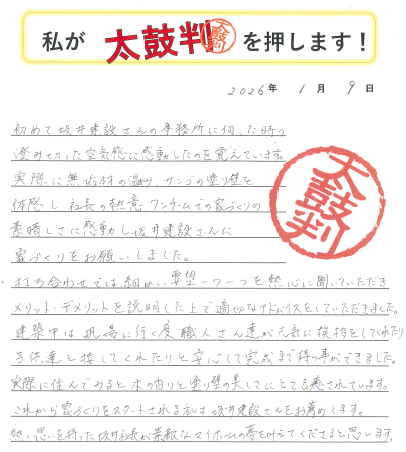 私が 太鼓判 太鼓判 を押します！
2026年 1月 9日
初めて坂井建設さんの事務所に伺った時の
澄み切った空気感に感動したのを覚えています。
実際に無垢材の温かみ、サンゴの塗り壁を
体感し、社長の熱意、ワンチームでの家づくりの
素晴しさに感動し坂井建設さんに
家づくりをお願いしました。
太鼓判
打ち合わせでは細かい要望一つ一つを熱心に聞いていただき
メリット・デメリットを説明した上で適切なアドバイスをしていただきました。
建築中は現場に行く度職人さん達が元気に挨拶をしてくれたり
子供達と接してくれたりと安心して完成まで待つ事ができました。
実際に住んでみると木の香りと塗り壁の美しさにとても癒されています。
これから家づくりをスタートされる方には坂井建設さんをお薦めします。
熱い思いを持った坂井社長が素敵なマイホームの夢を叶えてくださると思います。